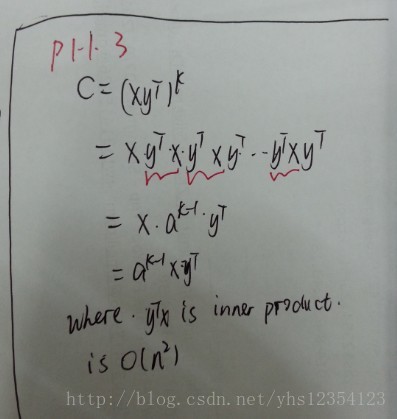 P1.1.3
C = (xyᵀ)ᵏ
= x yᵀ·x·yᵀ x yᵀ··-yᵀxyᵀ
= x·aᵏ⁻¹·yᵀ
= aᵏ⁻¹x·yᵀ
where. yᵀx is inner product.
is O(n²)
http://blog.csdn.net/yhs12354123